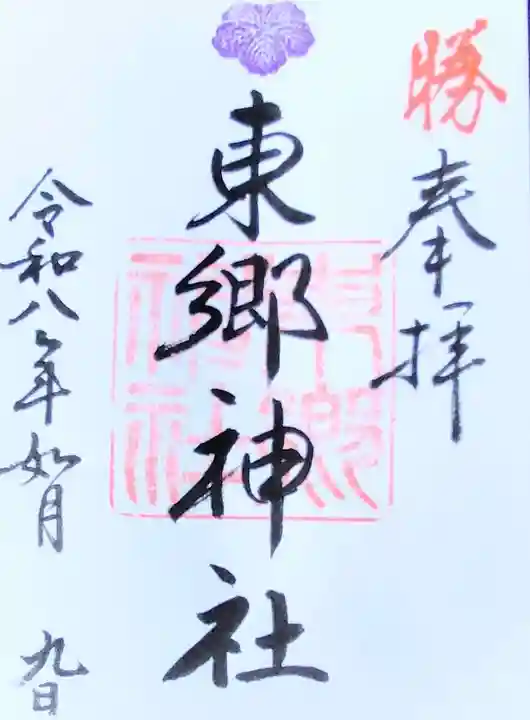 勝
奉拝
東郷神社
東郷神社
令和八年如月 九日